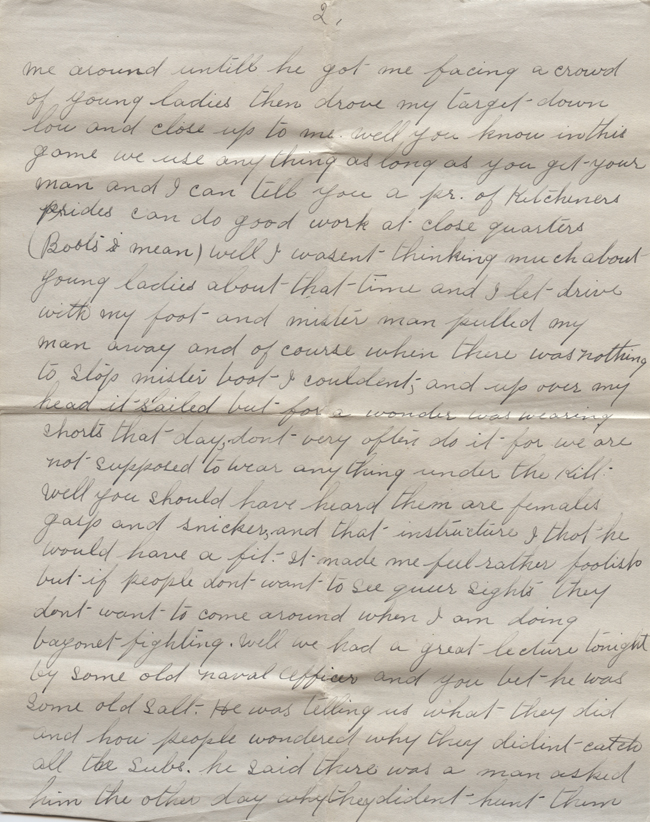 2,
me around untill he got me facing a crowd
of young ladies then drove my target down
low and close up to me. well you know in this
game we use anything as long as you get your
man and I can tell you a pr. of Kitcheners
prides can do good work at close quarters
(Boots I mean) well I wasent thinking much about
young ladies about that time and I let drive
with my foot and mister man pulled my
man away and of course when there was nothing
to stop mister boot I couldent, and up over my
head it sailed but for a wonder was wearing
shorts that day, dont very often do it for we are
not supposed to wear anything under the Kilt.
Well you should have heard them are females
gasp and snicker, and that instructure I thot he
would have a fit. It made me feel rather foolish
but if people dont want to see queer sights they
dont want to come around when I am doing
bayonet fighting. Well we had a great lecture tonight
by some old naval officer and you bet he was
some old salt. He was telling us what they did
and how people wondered why they didint catch
all the subs. he said there was a man asked
him the other day why they dident hunt them